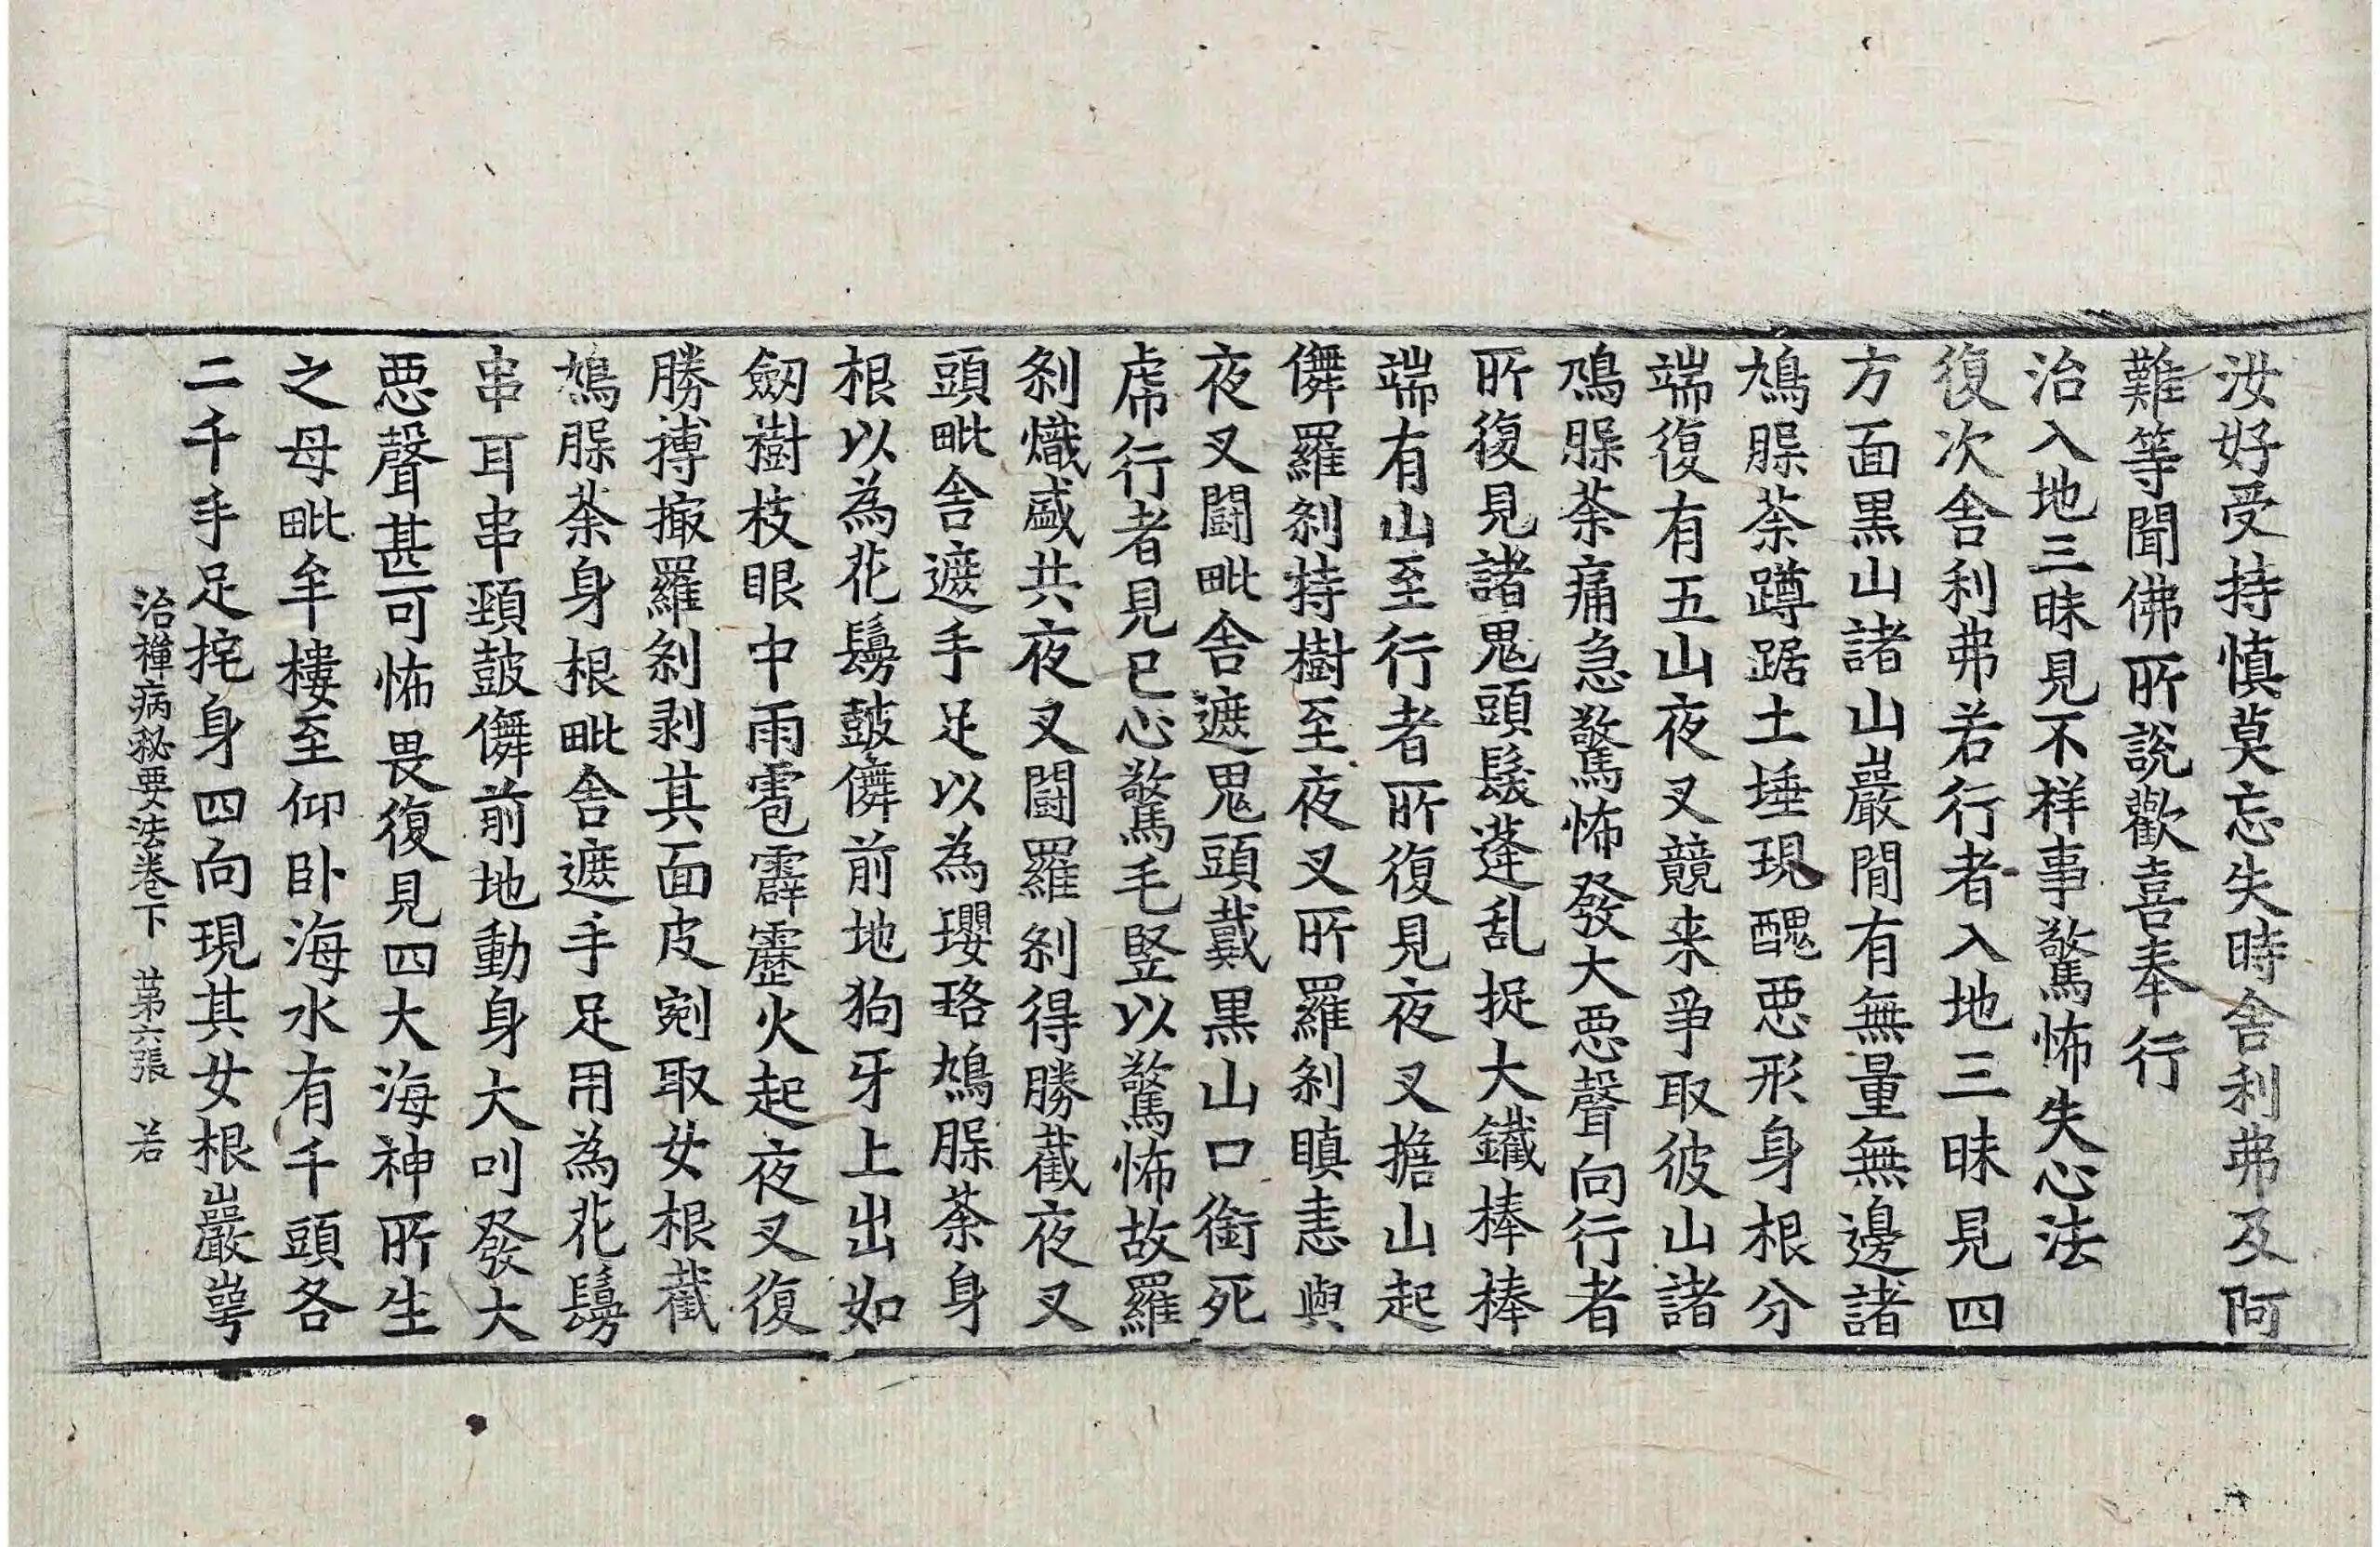 汝好受持慎莫忘失時舍利弗及阿
難等聞佛所說歡喜奉行
治入地三昧見不祥事驚怖失心法
復次舍利弗若行者入地三昧見四
方面黒山諸山巖間有無量無邊諸
鳩脲荼蹲踞土埵現醜惡形身根分
端復有五山夜叉競来爭取彼山諸
鳩脲荼痛急驚怖發大惡聲向行者
所復見諸鬼頭髮蓬乱捉大鐵棒棒
端有山至行者所復見夜叉擔山起
儛羅剎持樹至夜叉所羅剎瞋恚與
夜叉闘毗舍遮鬼頭戴黒山口銜死
虎行者見已心驚毛竪以驚怖故羅
剎熾盛共夜叉闘羅剎得勝截夜叉
頭毗舍遮手足以為瓔珞鳩脲荼身
根以為花鬘鼓儛前地狗牙上出如
劒樹枝眼中雨雹霹靂火起夜叉復
勝搏撮羅剎剥其面皮剜取女根截
鳩脲荼身根毗舍遮手足用為花鬘
串耳串頸鼓儛前地動身大叫發大
惡聲甚可怖畏復見四大海神所生
之母毗牟樓至仰卧海水有千頭各
二千手足挓身四向現其女根巖崿
治禪病秘要法卷下　苐六張　若